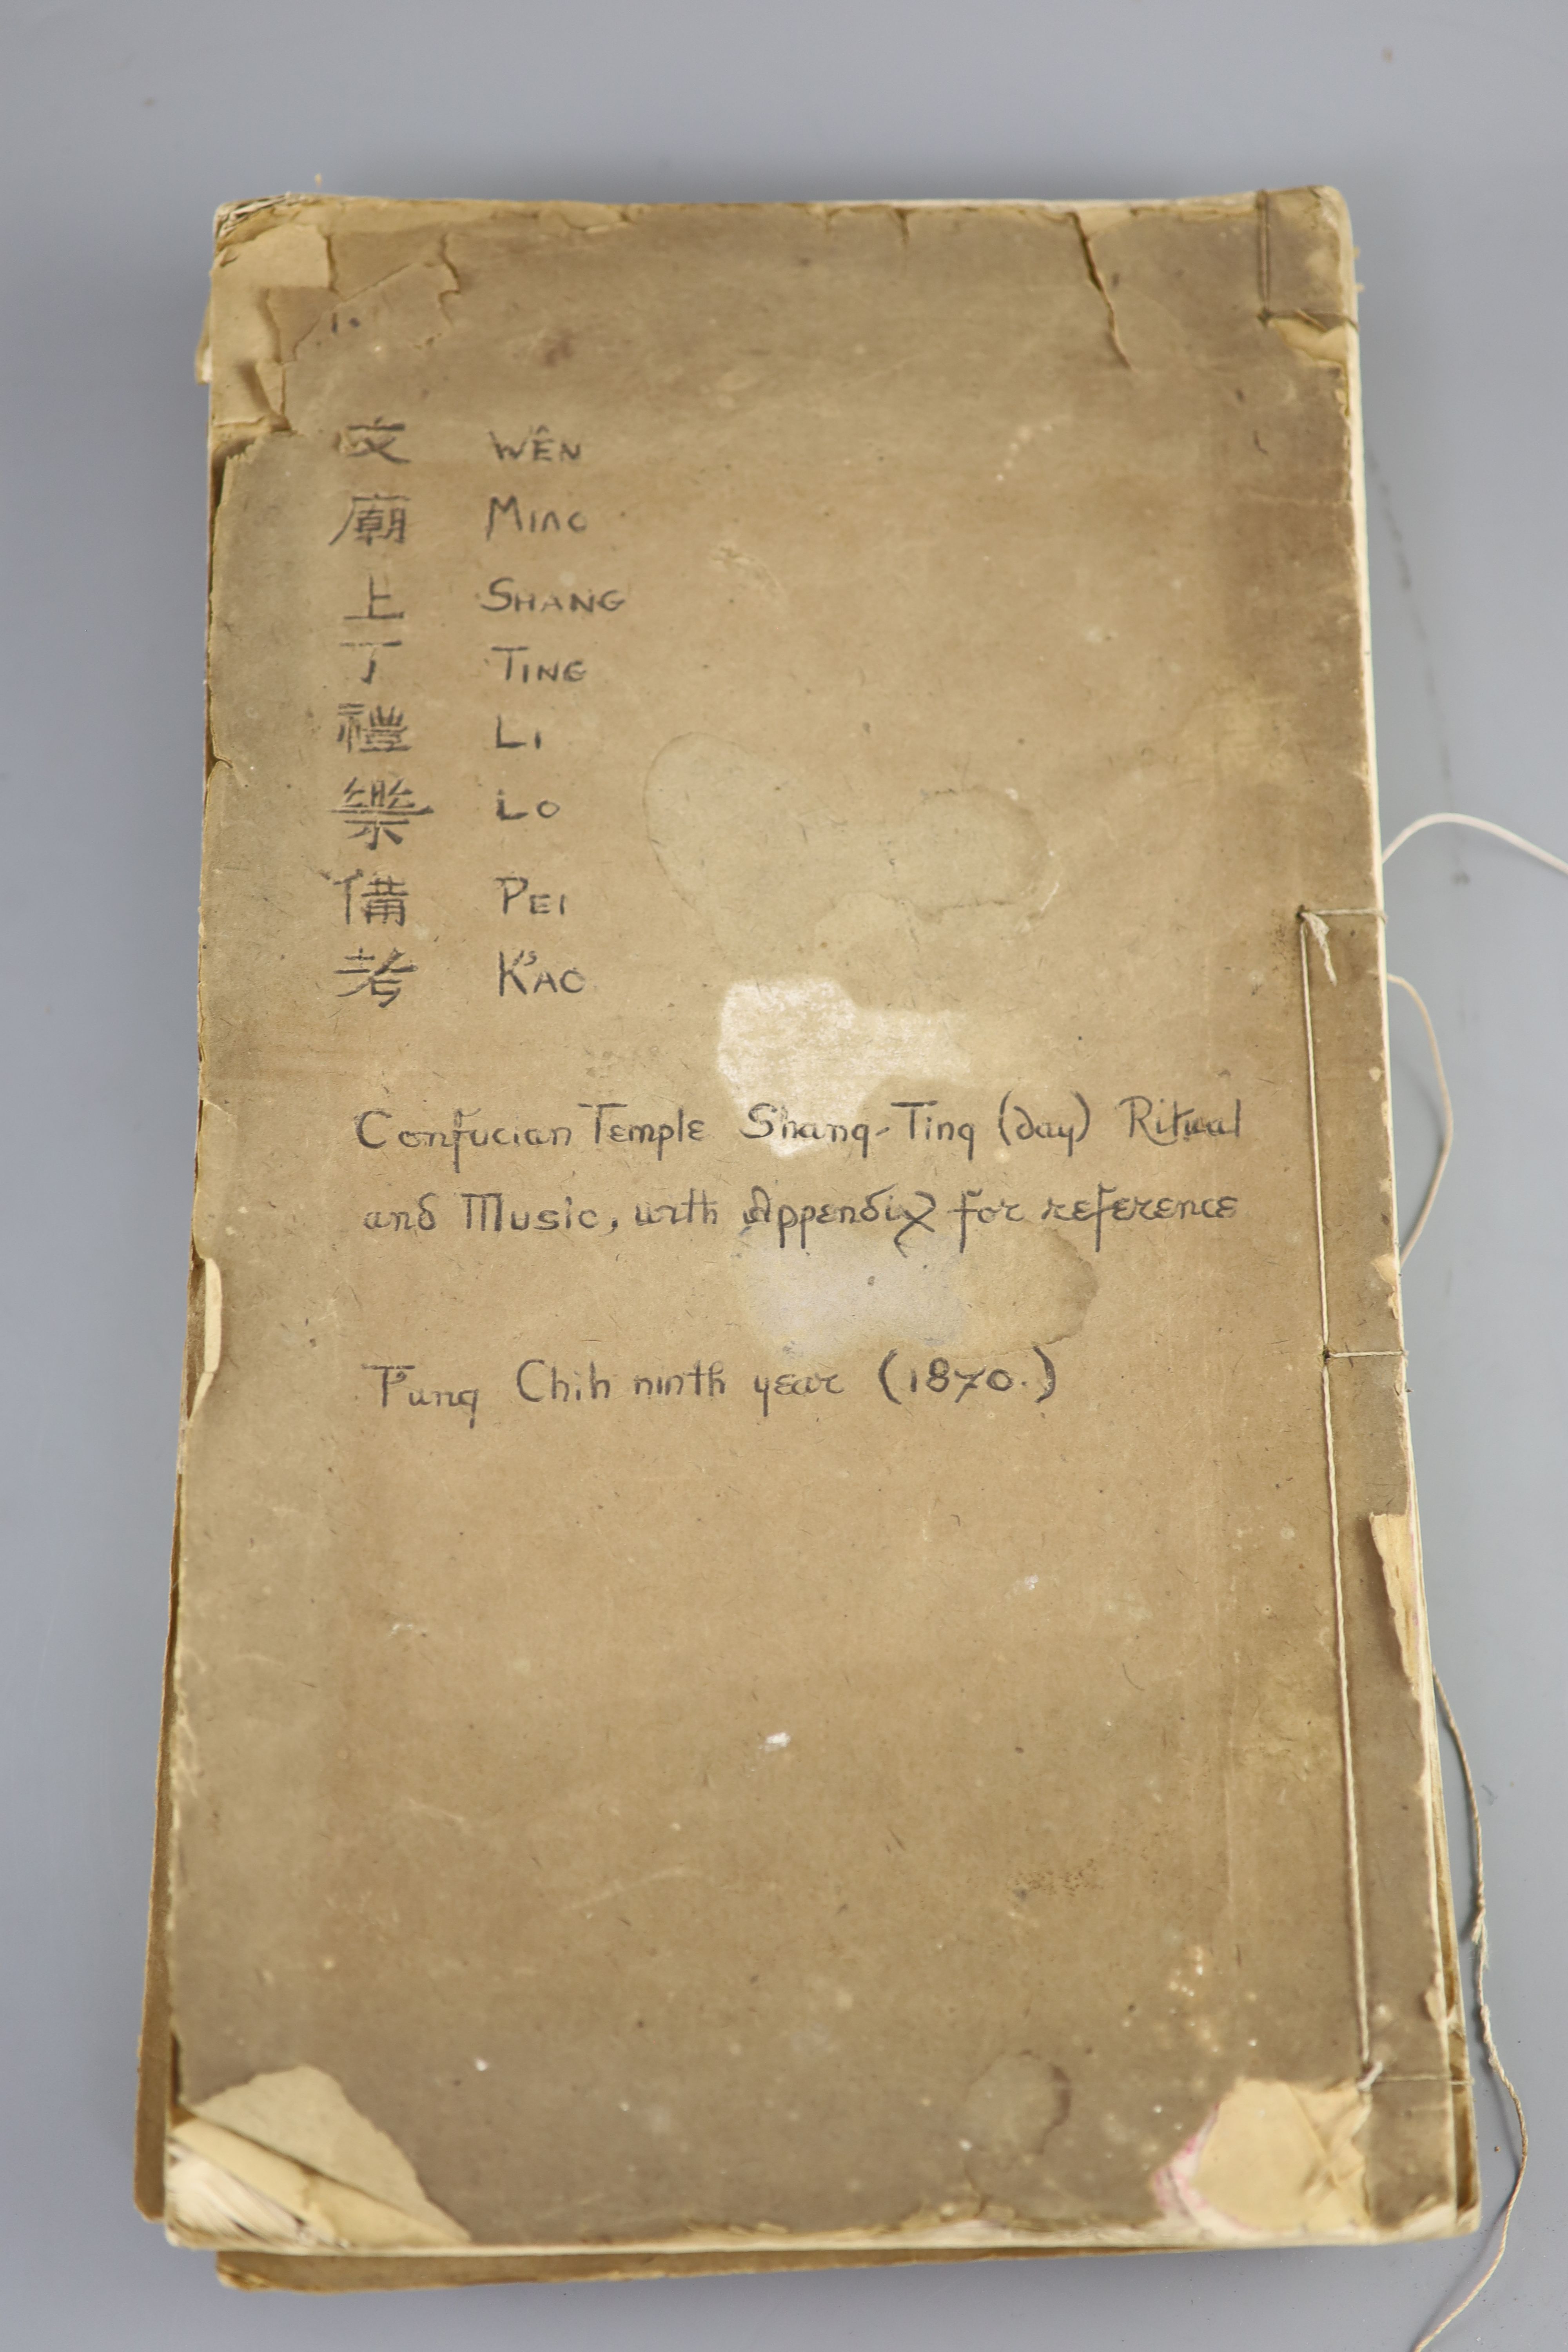 1.
文 WÊN
廟 MIAO
上 SHANG
丁 TING
禮 LI
樂 LO
備 PEI
考 K'AO
Confucian Temple Shang-Ting (day) Ritual
and Music, with Appendix for reference
T'ung Chih ninth year (1870.)